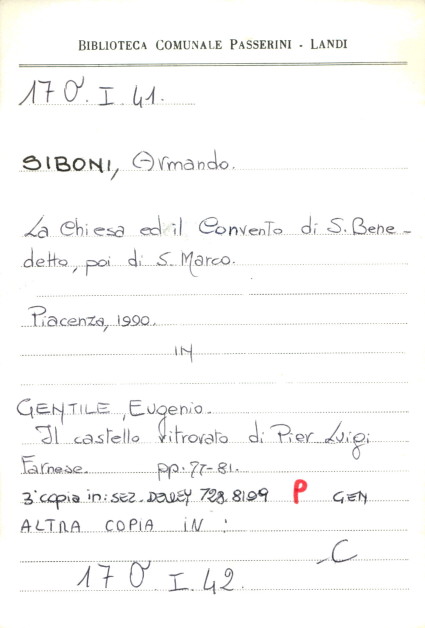 BIBLIOTECA COMUNALE PASSERINI - LANDI
17 O. I. 41.
SIBONI, Armando.
La Chiesa ed il Convento di S. Bene-
detto, poi di S. Marco.
Piacenza, 1990.
IN
GENTILE, Eugenio.
Il castello ritrovato di Pier Luigi
Farnese. pp. 77-81.
3ª copia in: SEZ. DEWEY 728.8109 P GEN
ALTRA COPIA IN :
C
17 O. I. 42.